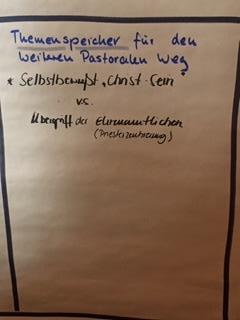 Themenspeicher für den
weiteren Pastoralen Weg
* Selbstbewußt, Christ-Sein
v.s.
Übergriff der Ehrenamtlichen
(Priesterzentrierung)